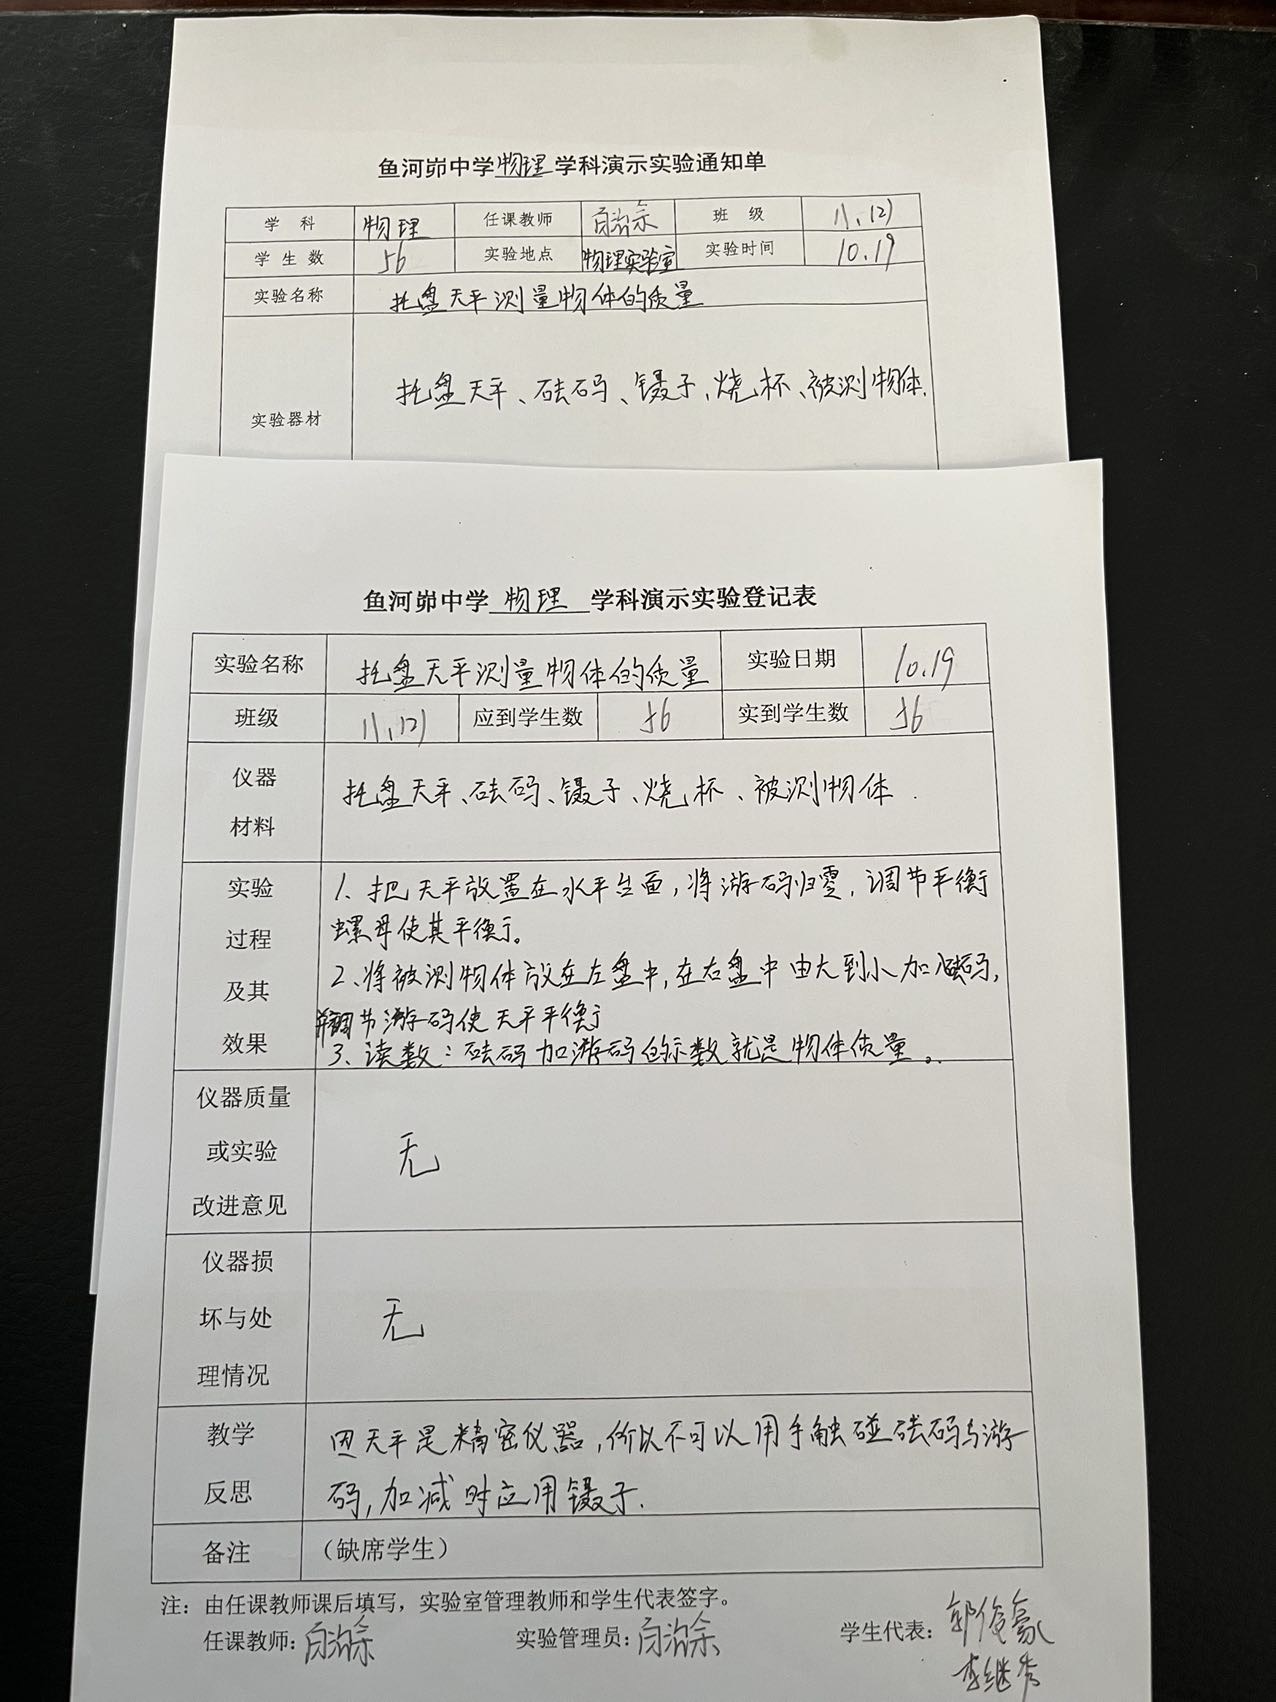 鱼河峁中学物理学科演示实验通知单
学 科 物理 任课教师 班 级 11,12)
学生数 56 实验地点 物理实验室 实验时间 10.19
实验名称 托盘天平测量物体的质量
实验器材 托盘天平、砝码、镊子、烧杯、被测物体.
鱼河峁中学 物理 学科演示实验登记表
实验名称 托盘天平测量物体的质量 实验日期 10.19
班级 11,12) 应到学生数 56 实到学生数 56
仪器
材料
托盘天平、砝码、镊子、烧杯、被测物体.
实验
过程
及其
效果
1、把天平放置在水平台面,将游码归零,调节平衡
螺母使其平衡。
2、将被测物体放在左盘中,在右盘中由大到小加砝码,
并调节游码使天平平衡
3、读数:砝码加游码的示数就是物体质量。
仪器质量
或实验
改进意见
无
仪器损
坏与处
理情况
无
教学
反思
因天平是精密仪器,所以不可以用手触碰砝码与游
码,加减时应用镊子.
备注 (缺席学生)
注:由任课教师课后填写,实验室管理教师和学生代表签字。
任课教师: 实验管理员: 学生代表:郭俊豪
李继秀